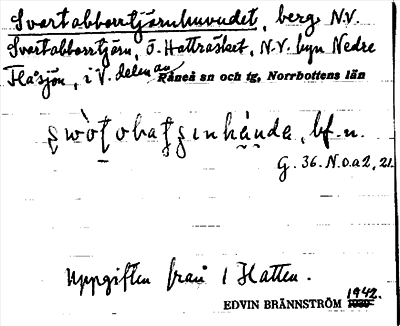 Svartabborrtjärnhuvudet, berg N.V.
Svartabborrtjärn, Ö. Hatträsket, N.V. byn Nedre
Flåsjön, i V. delen av Råneå sn och tg, Norrbottens län
bf. n.
G. 36. N.o.a2, 21.
Uppgiften från 1 Hatten.
1942.
EDVIN BRÄNNSTRÖM